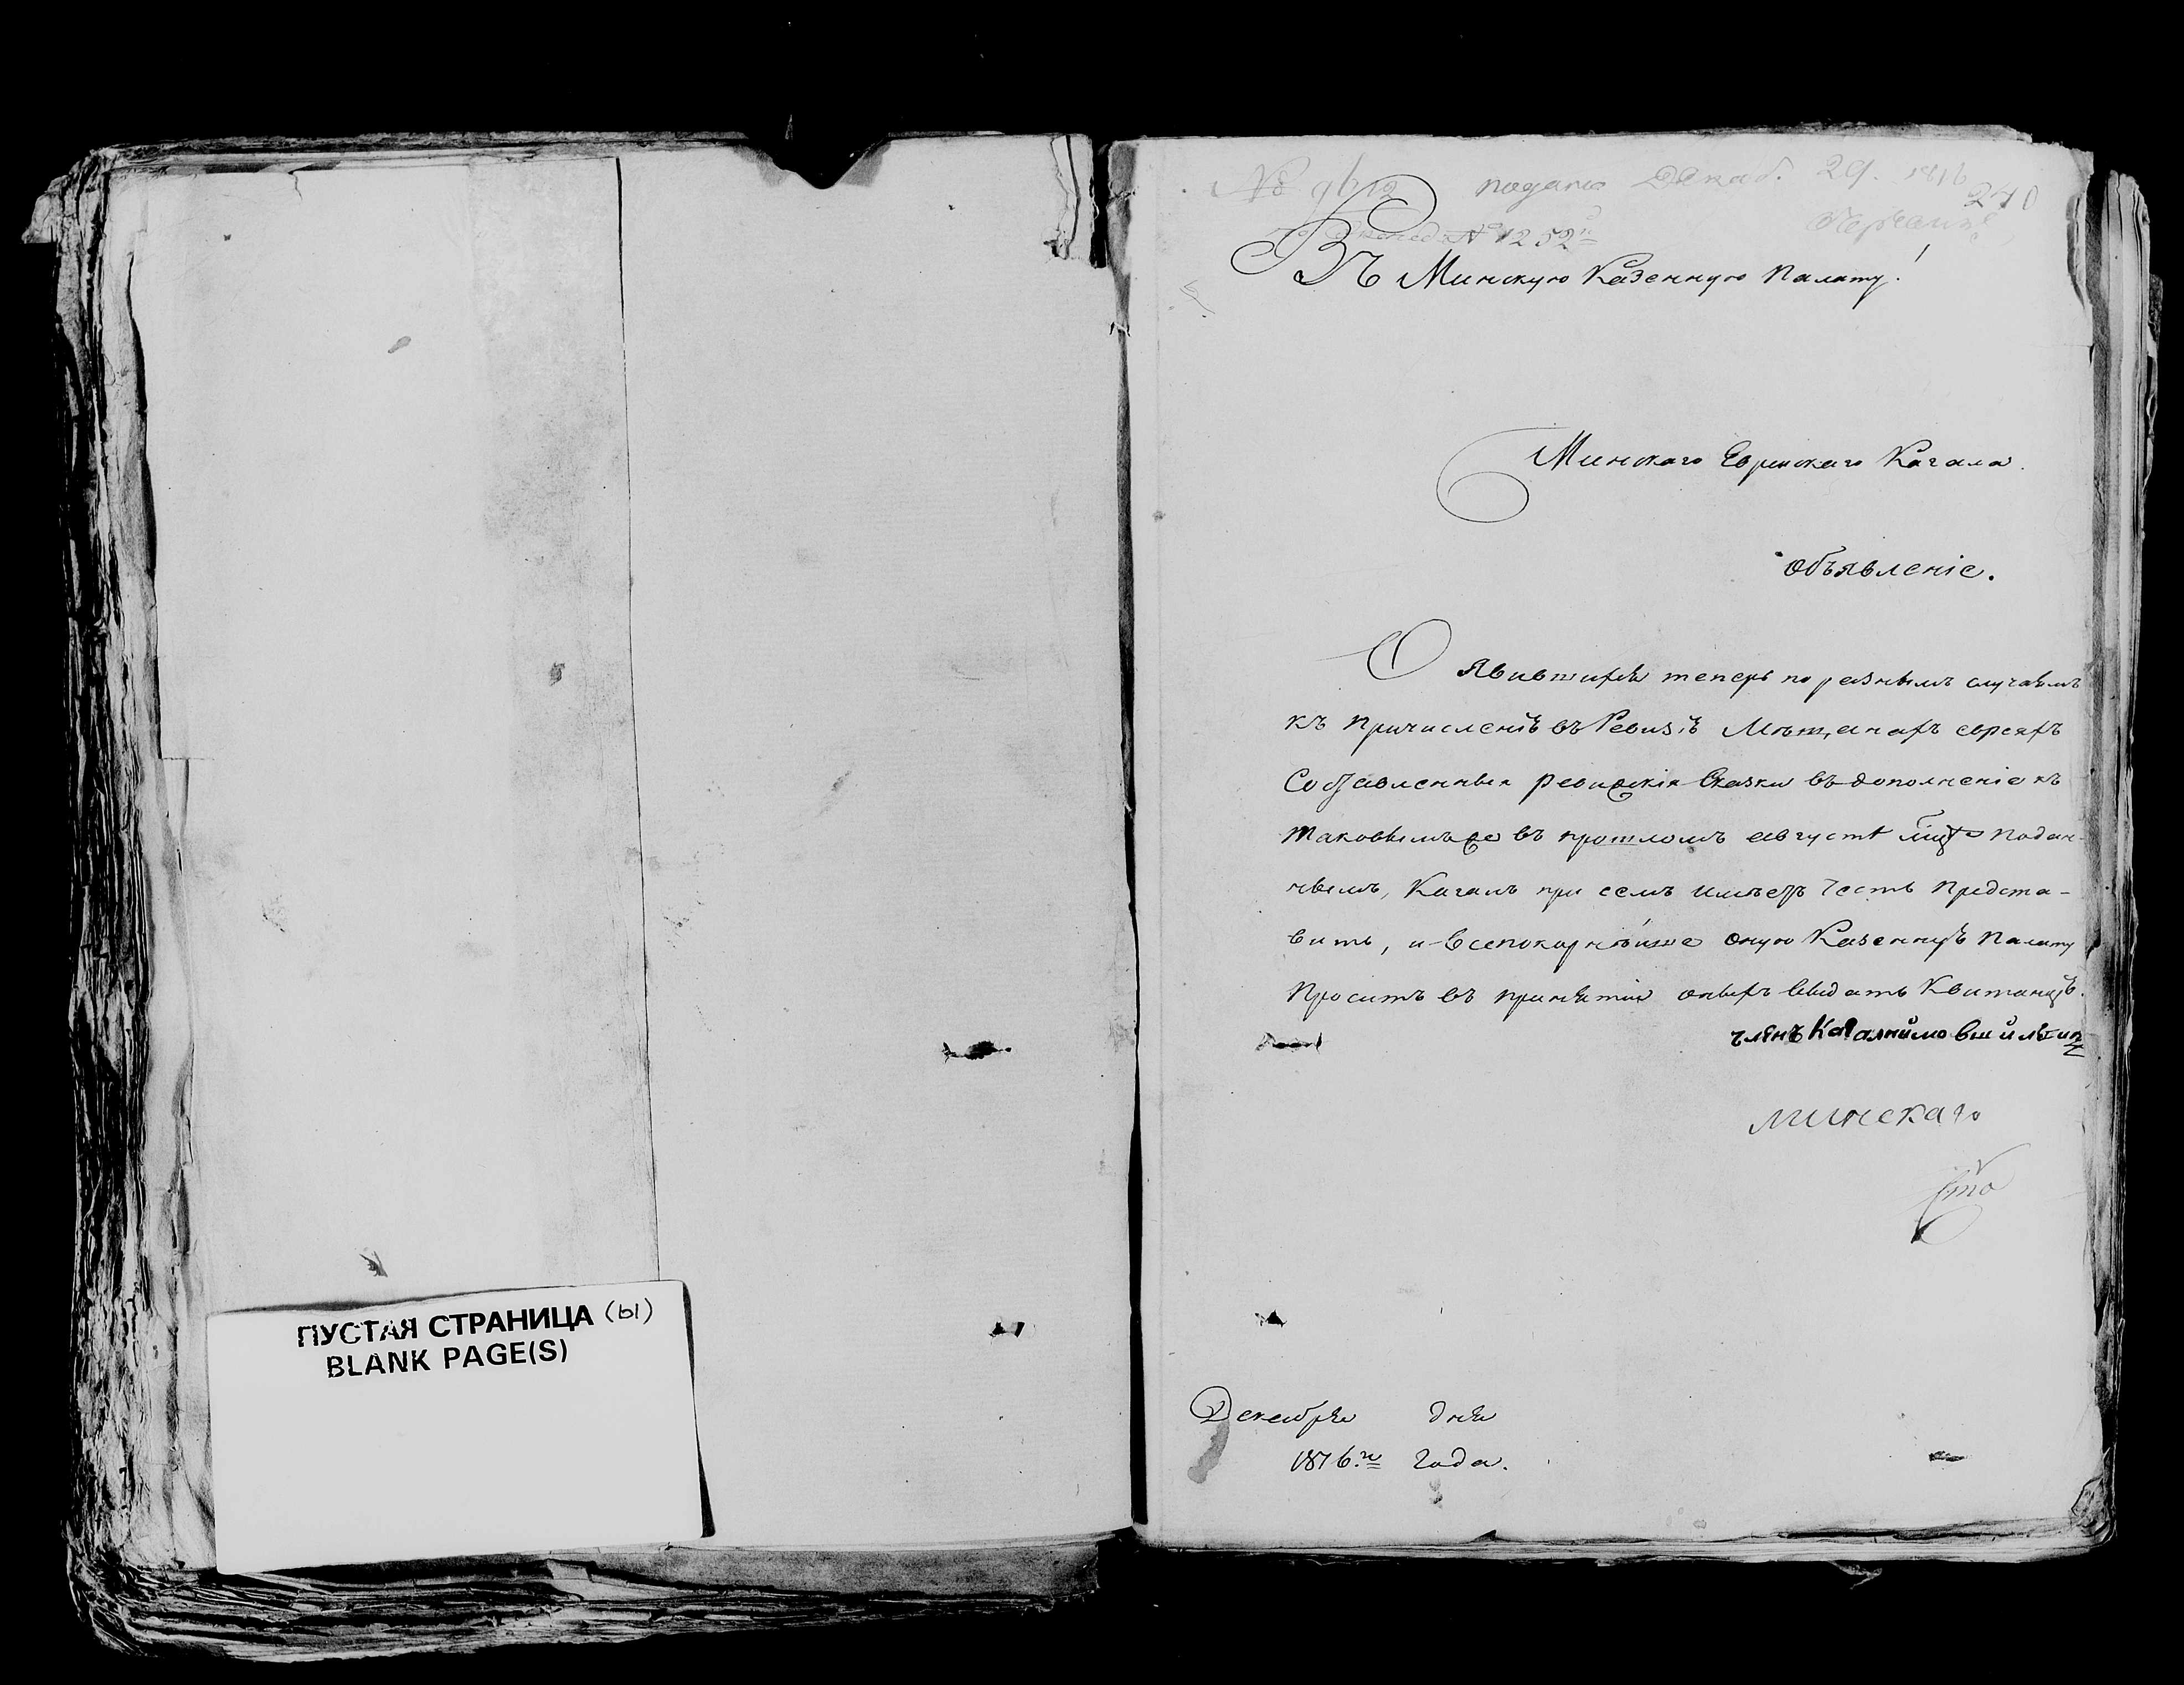 ПУСТАЯ СТРАНИЦА (ы)
BLANK PAGE(S)
подано Декаб. 29. 1816
270
№ 1252
Въ Минскую Казенную Палату!
Минскаго Еврейскаго Кагала.
Объявленіе.
О явившихся теперь по разнымъ случаямъ
къ причисленію въ Ревизію Мѣщанахъ евреяхъ
Составленныя ревизскія Сказки въ дополненіе къ
таковымъ же въ прошломъ августѣ подан-
нымъ, Кагалъ при семъ имѣетъ честь предста-
вить, и всепокорнѣйше оную Казенную Палату
Проситъ въ принятіи оныхъ выдать Квитанцію.
члѣнъ
минскаго
Декабря дня
1816го года.